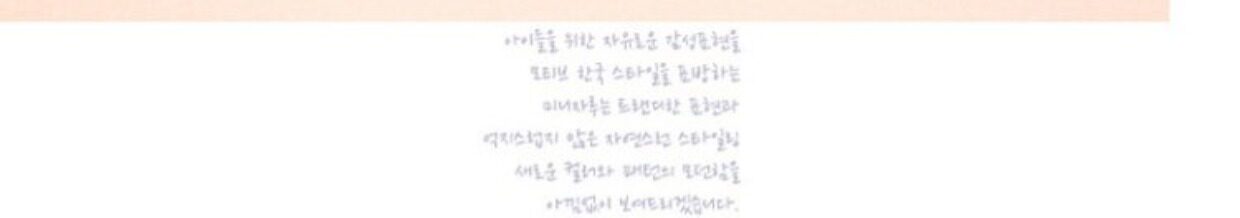 아이들을 위한 자유로운 감성표현을
모티브 한국 스타일을 표방하는
미니자루는 트랜디한 표현과
억지스럽지 않은 자연스런 스타일링
새로운 컬러와 패턴의 모던함을
아낌없이 보여드리겠습니다.